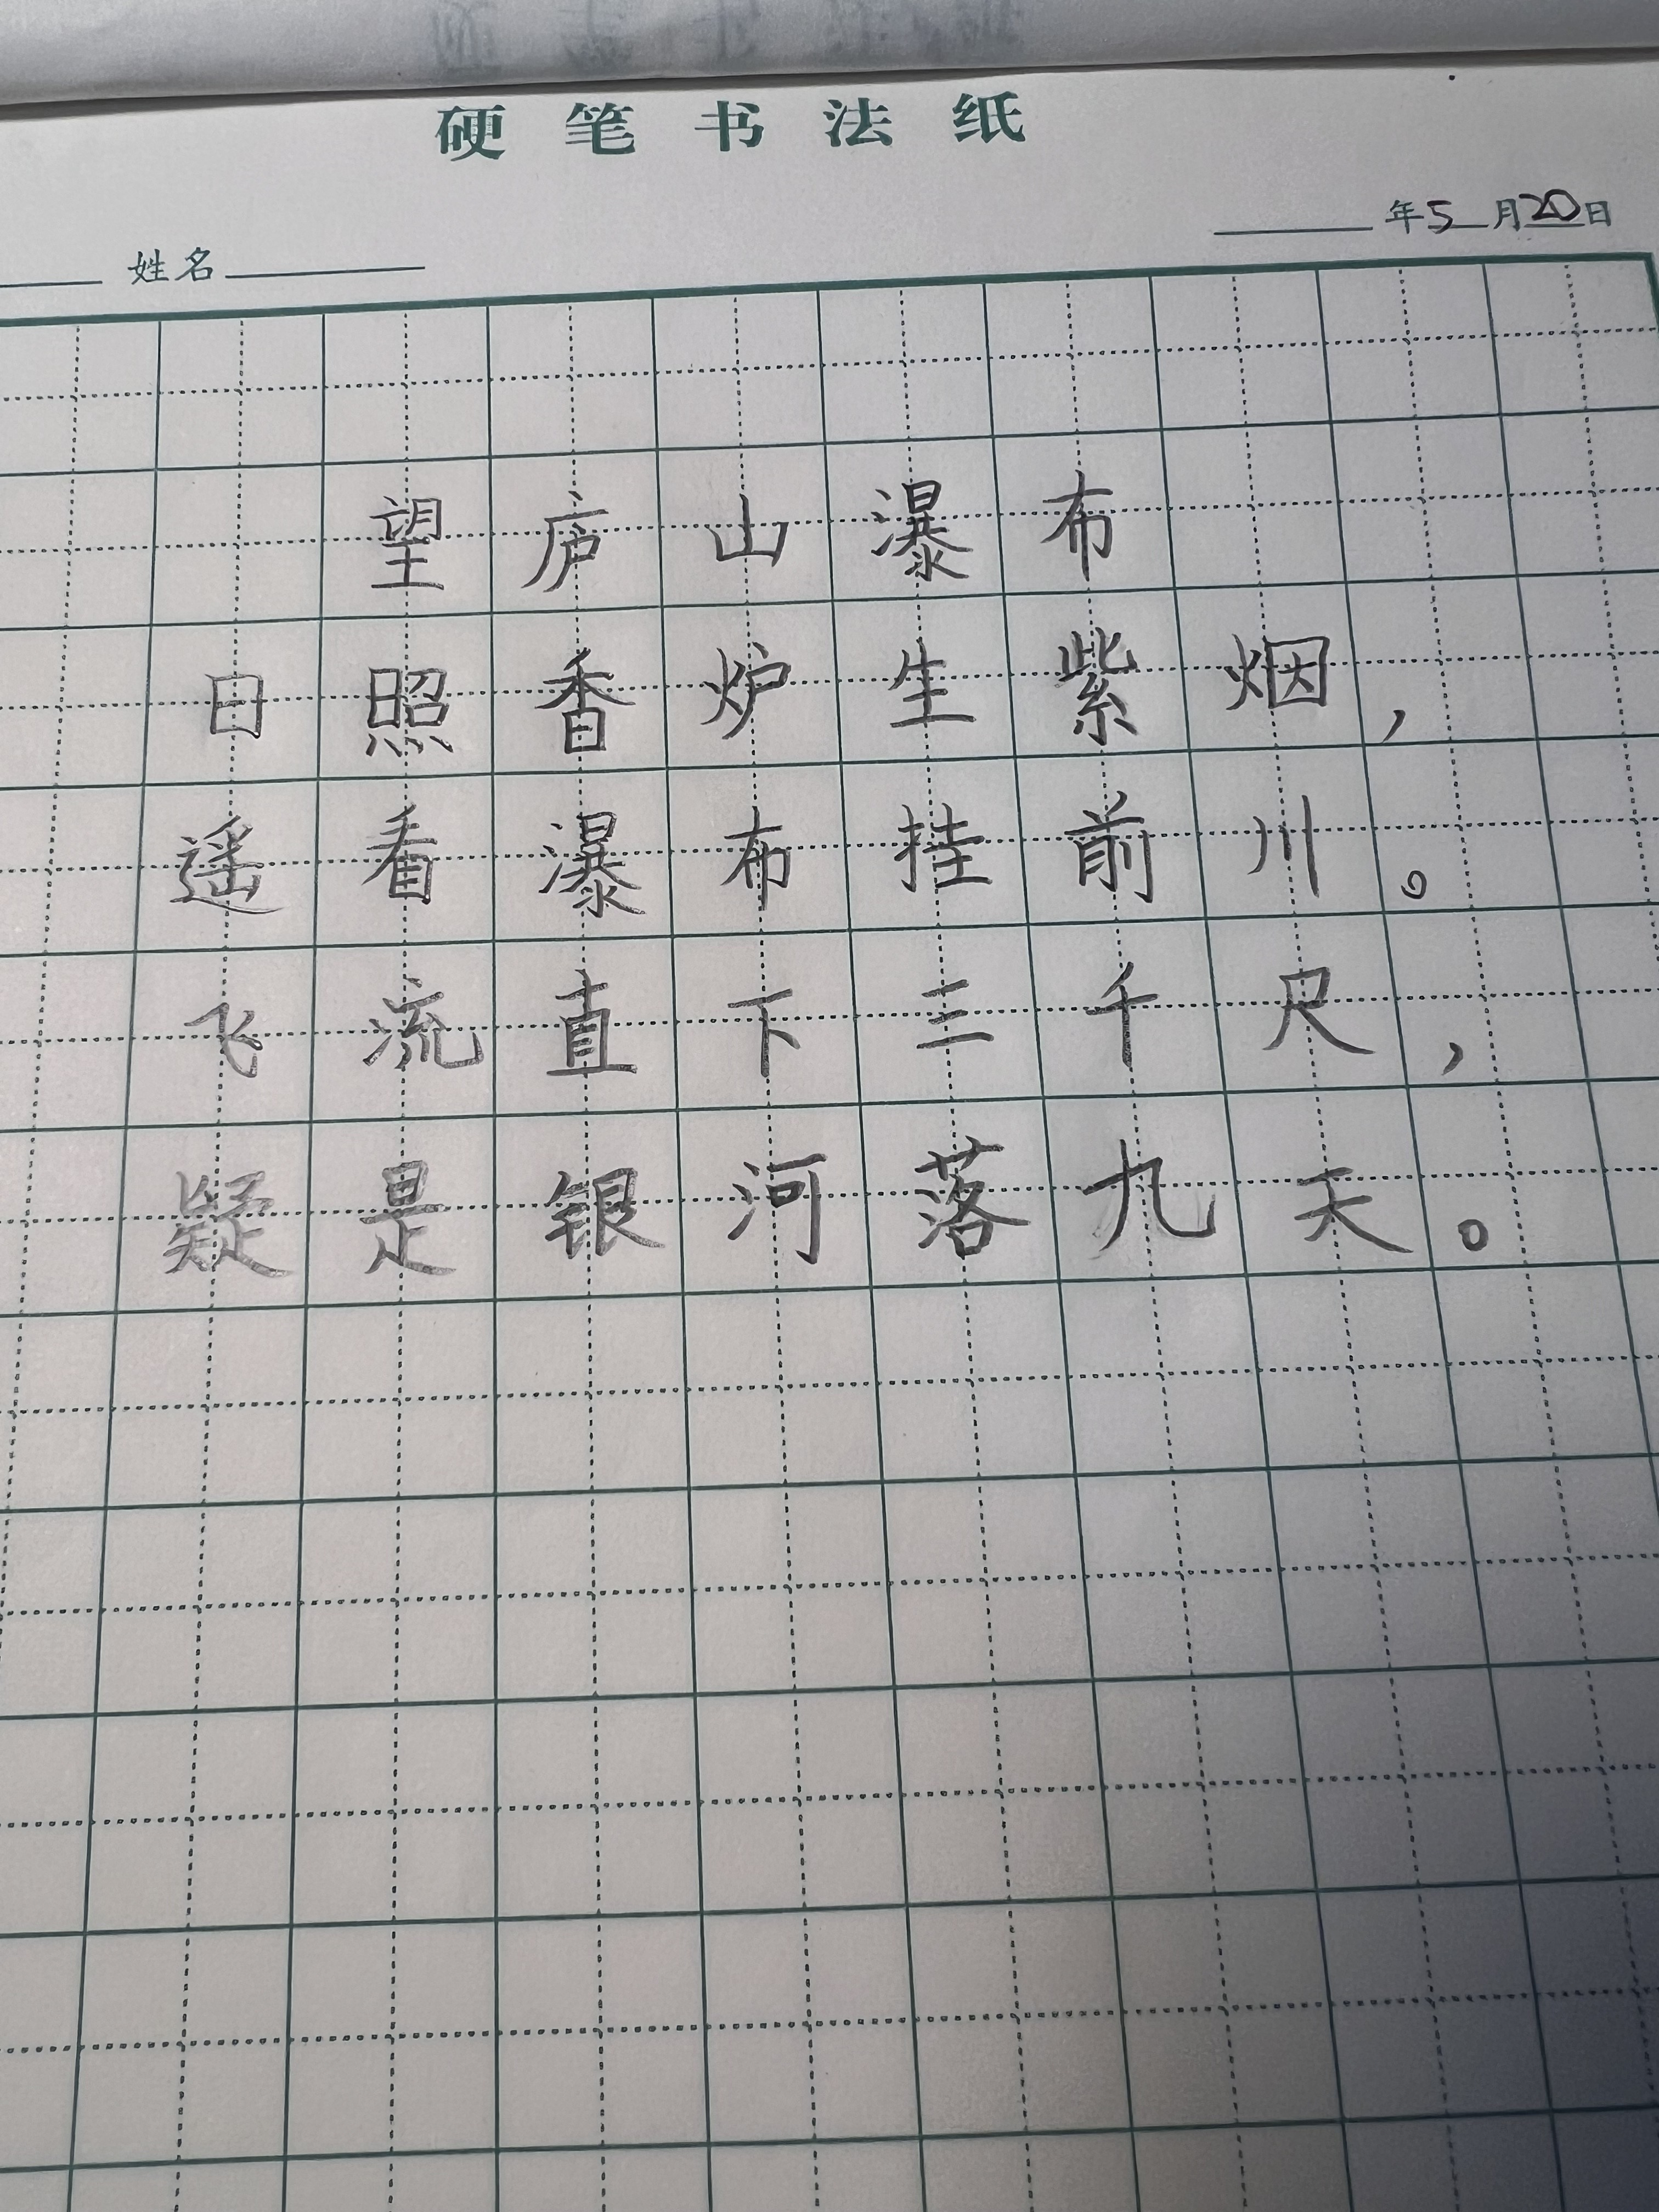 硬笔书法纸
年5月20日
姓名
望庐山瀑布
日照香炉生紫烟，
遥看瀑布挂前川。
飞流直下三千尺，
疑是银河落九天。